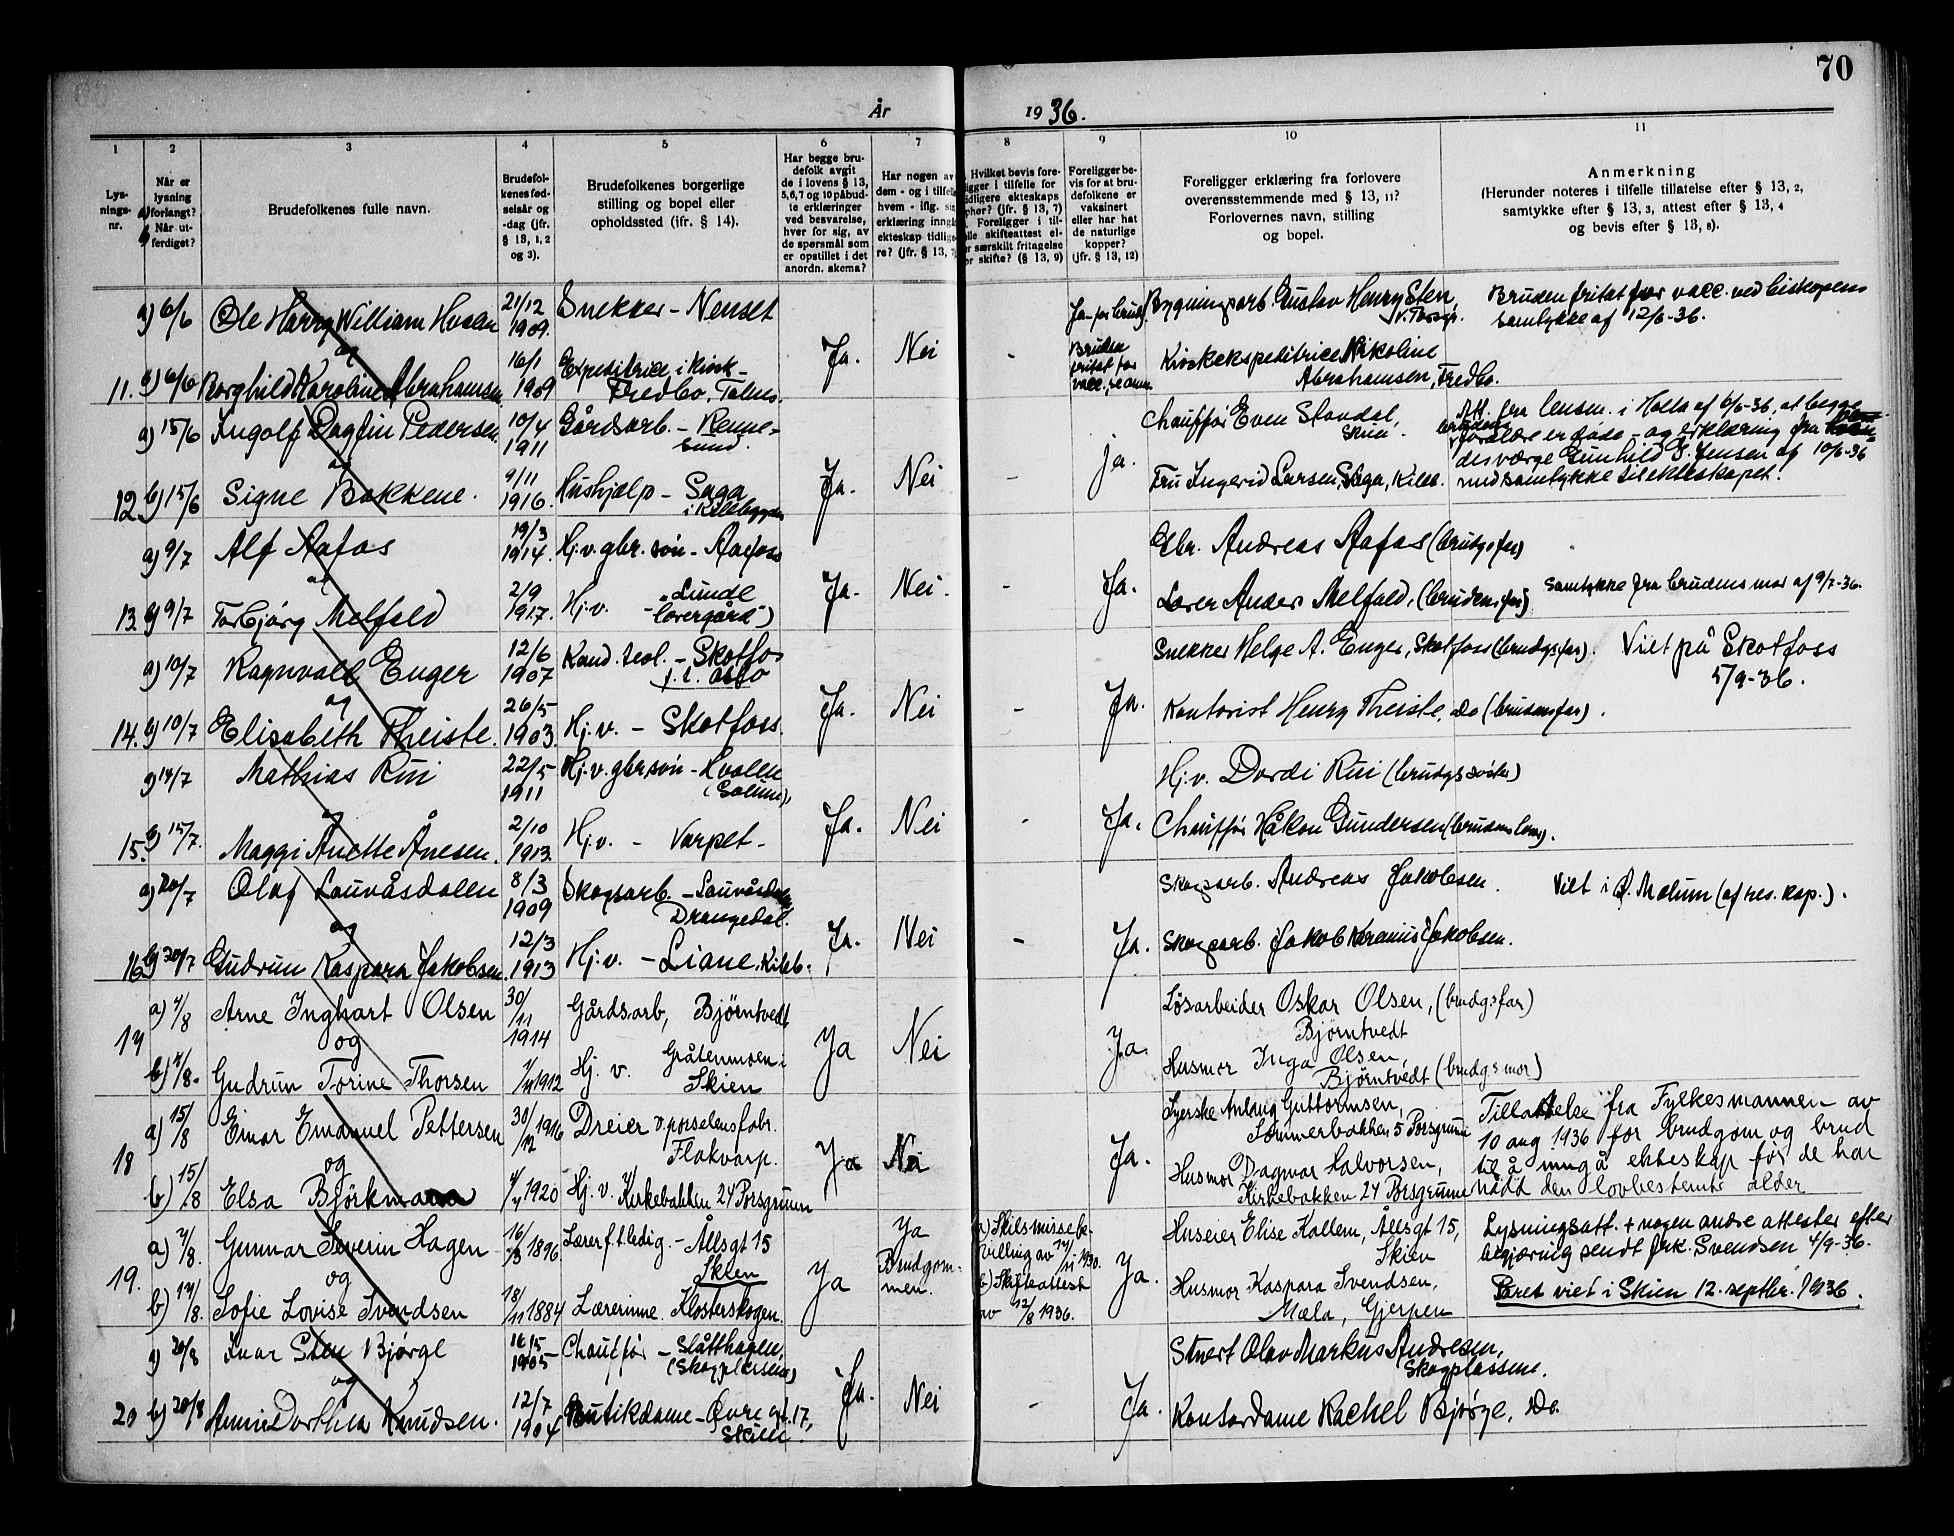 70
År 1936.
1 2 3 4 5 6 7 8 9 10 11
Lysnings-nr.
Når er lysning forlangt? Når utferdiget?
Brudefolkenes fulle navn.
Brudefolkenes fødselsår og -dag (jfr. § 13, 1, 2 og 3).
Brudefolkenes borgerlige stilling og bopel eller opholdssted (ifr. § 14).
Har begge brudefolk avgit de i lovens § 13, 5,6,7 og 10 påbudte erklæringer ved besvarelse, hver for sig, av de spørsmål som er opstillet i det anordn. skema?
Har nogen av dem - og i tilfelle hvem - iflg. sin erklæring inngått ekteskap tidligere? (jfr. § 13, 7)
Hvilket bevis foreligger i tilfelle for tidligere ekteskaps ophør? (jfr. § 13, 7) Foreligger i tilfelle skifteattest eller særskilt fritagelse for skifte? (§ 13, 9)
Foreligger bevis for at brudefolkene er vaksinert eller har hat de naturlige kopper? (jfr. § 13, 12)
Foreligger erklæring fra forlovere overensstemmende med § 13, 11? Forlovernes navn, stilling og bopel.
Anmerkning
(Herunder noteres i tilfelle tillatelse efter § 13, 2, samtykke efter § 13, 3, attest efter § 13, 4 og bevis efter § 13, 8).
a) 6/6 Ole Harry William 21/12 1909. Snekker - Nenset Ja for brudg. Bygningsarb. Gustav Henry Sten, V. Porsgr. Bruden fritat for vacc. ved biskopens samtykke af 12/6-36.
og
11. b) 6/6 Borghild Karoline Abrahamsen. 16/1 1909 Expeditrice i kiosk - Fredbo, Ja. Nei - Bruden fritat for vacc., se anm. Kioskekspeditrice Nikoline Abrahamsen, Fredbo.
a) 15/6 Ingolf Dagfin Pedersen 10/4 1911 Gårdsarb. - Chauffør Even Standal, Skien. Att. fra lensm. i Holla af 6/6-36, at begge brudens forældre er døde - og erklæring fra
og
12. b) 15/6 Signe Bakkene. 9/11 1916. Hushjælp - Saga i Kilebygden Ja. Nei - ja. Fru Ingerid Larsen, Saga, Kileb. værge Gunhild Jensen af 10/6-36 med samtykke til ekteskapet.
a) 9/7 Alf Aafos 19/3 1914. Hj.v. gbr. søn - Aafoss Gbr. Andreas Aafos (brudgs far)
og
13. b) 9/7 Torbjørg Melfald 2/9 1917. Hj.v. - "Lunde lærergård") Ja. Nei. - Ja. Lærer Anders Melfald, (brudens far) Samtykke fra brudens mor af 9/7-36.
a) 10/7 Ragnvall Enger 12/6 1907 Kand. teol. - Skotfos Oslo Snekker Helge A. Enger, Skotfoss (brudgs far). Viet på Skotfoss 5/9-36.
og
14. b) 10/7 Elisabeth Theiste. 26/5 1903. Hj.v. - Skotfoss. Ja. Nei - Ja. Kontorist Henry Theiste, do (brudens far).
a) 14/7 Mathias Rui 22/5 1911 Hj.v. gbr søn - Hvalen (Solum), Hj.v. Dordi Rui (brudgs søster)
15. b) 15/7. Maggi Anette Ånesen. 2/10 1913. Hj.v. - Varpet - Ja. Nei - Ja. Chauffør Håkon Gundersen
a) 20/7 Olaf Lauvåsdalen 8/3 1909 Skogsarb. - Lauvåsdalen, Drangedal. Skogsarb. Andreas Jakobsen. Viet i Melum (af res. kap.).
og
16. b) 20/7 Gudrun Kaspara Jakobsen. 12/3 1913 Hj.v. - Liane, Kileb. Ja. Nei - Ja. Skogsarb. Jakob Jakobsen.
a) 4/8 Arne Inghart Olsen 30/11 1914 Gårdsarb, Bjørntvedt Løsarbeider Oskar Olsen, (brudgs far) Bjørntvedt
17 og Ya Nei Ya.
b) 4/8. Gudrun Torine Thorsen 1912 Hj. v. Gråtenmoen - Skien Husmor Inga Olsen, Bjørntvedt (brudgs mor)
a) 15/8 Einar Emanuel Pettersen 30/12 1916 Dreier v. porselensfabr. Flakvarp. Syerske Anlaug Guttormsen, Sømmerbakken 5 Porsgrunn Tillatelse fra Fylkesmannen av 10 aug 1936 for brudgom og brud
18 og Ya Nei Ja.
b) 15/8 Elsa Björkman 1920 Hj. v. Kirkebakken 24 Porsgrunn Husmor Dagmar Halvorsen, Kirkebakken 24 Porsgrunn til å inngå ekteskap før de har nådd den lovbestemte alder
a) 7/8. Gunnar Severin Hagen 16/3 1896 Lærer f.t. ledig. - Ållsgt 15 Skien Ya Brudgommen. a) Skilsmissebevilling av 14/11 1930. Huseier Elise Kallem, Ållsgt 15, Skien Lysningsatt. + nogen andre attester efter begjæring sendt frk. Svendsen 4/9-36.
19. og Ya Ya.
b) 14/8. Sofie Lovise Svendsen 18/11 1884 Lærerinne. Klosterskogen. b) Skifteattest av 12/8 1936. Husmor Kaspara Svendsen, Mæla, Gjerpen Paret viet i Skien 12. septbr. 1936.
a) 20/8 Ivar Sten Bjørge 1905 Chauffør - Slåtthagen, (Skogplassene) Stuert Olav Markus Andresen, Skogplassene.
og
20 b) 20/8 Annie Dorthea Knudsen. 12/7 1904 Butikdame - Øvre gt. 17, Skien. Ja. Nei - Ja. Kontordame Rachel Bjørge, Do.